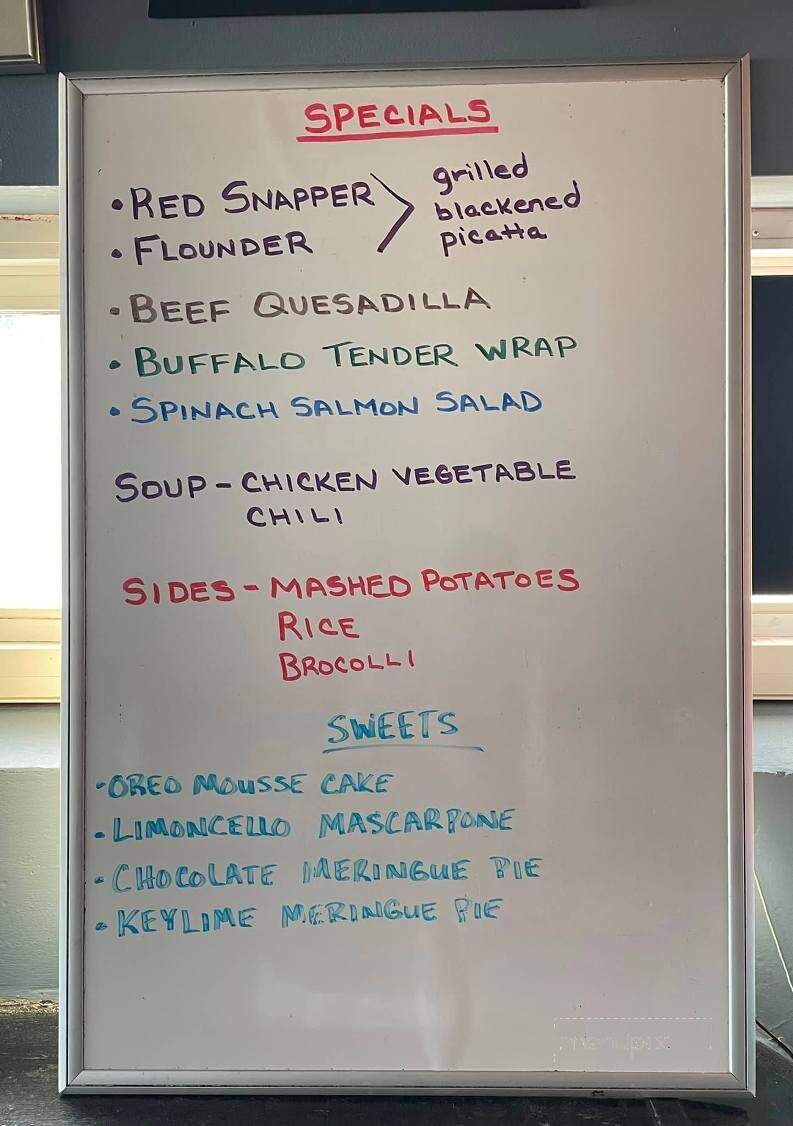 SPECIALS
• RED SNAPPER
• FLOUNDER
grilled
blackened
picatta
• BEEF QUESADILLA
• BUFFALO TENDER WRAP
• SPINACH SALMON SALAD
SOUP - CHICKEN VEGETABLE
CHILI
SIDES - MASHED POTATOES
RICE
BROCOLLI
SWEETS
• OREO MOUSSE CAKE
• LIMONCELLO MASCARPONE
• CHOCOLATE MERINGUE PIE
• KEYLIME MERINGUE PIE
menupix